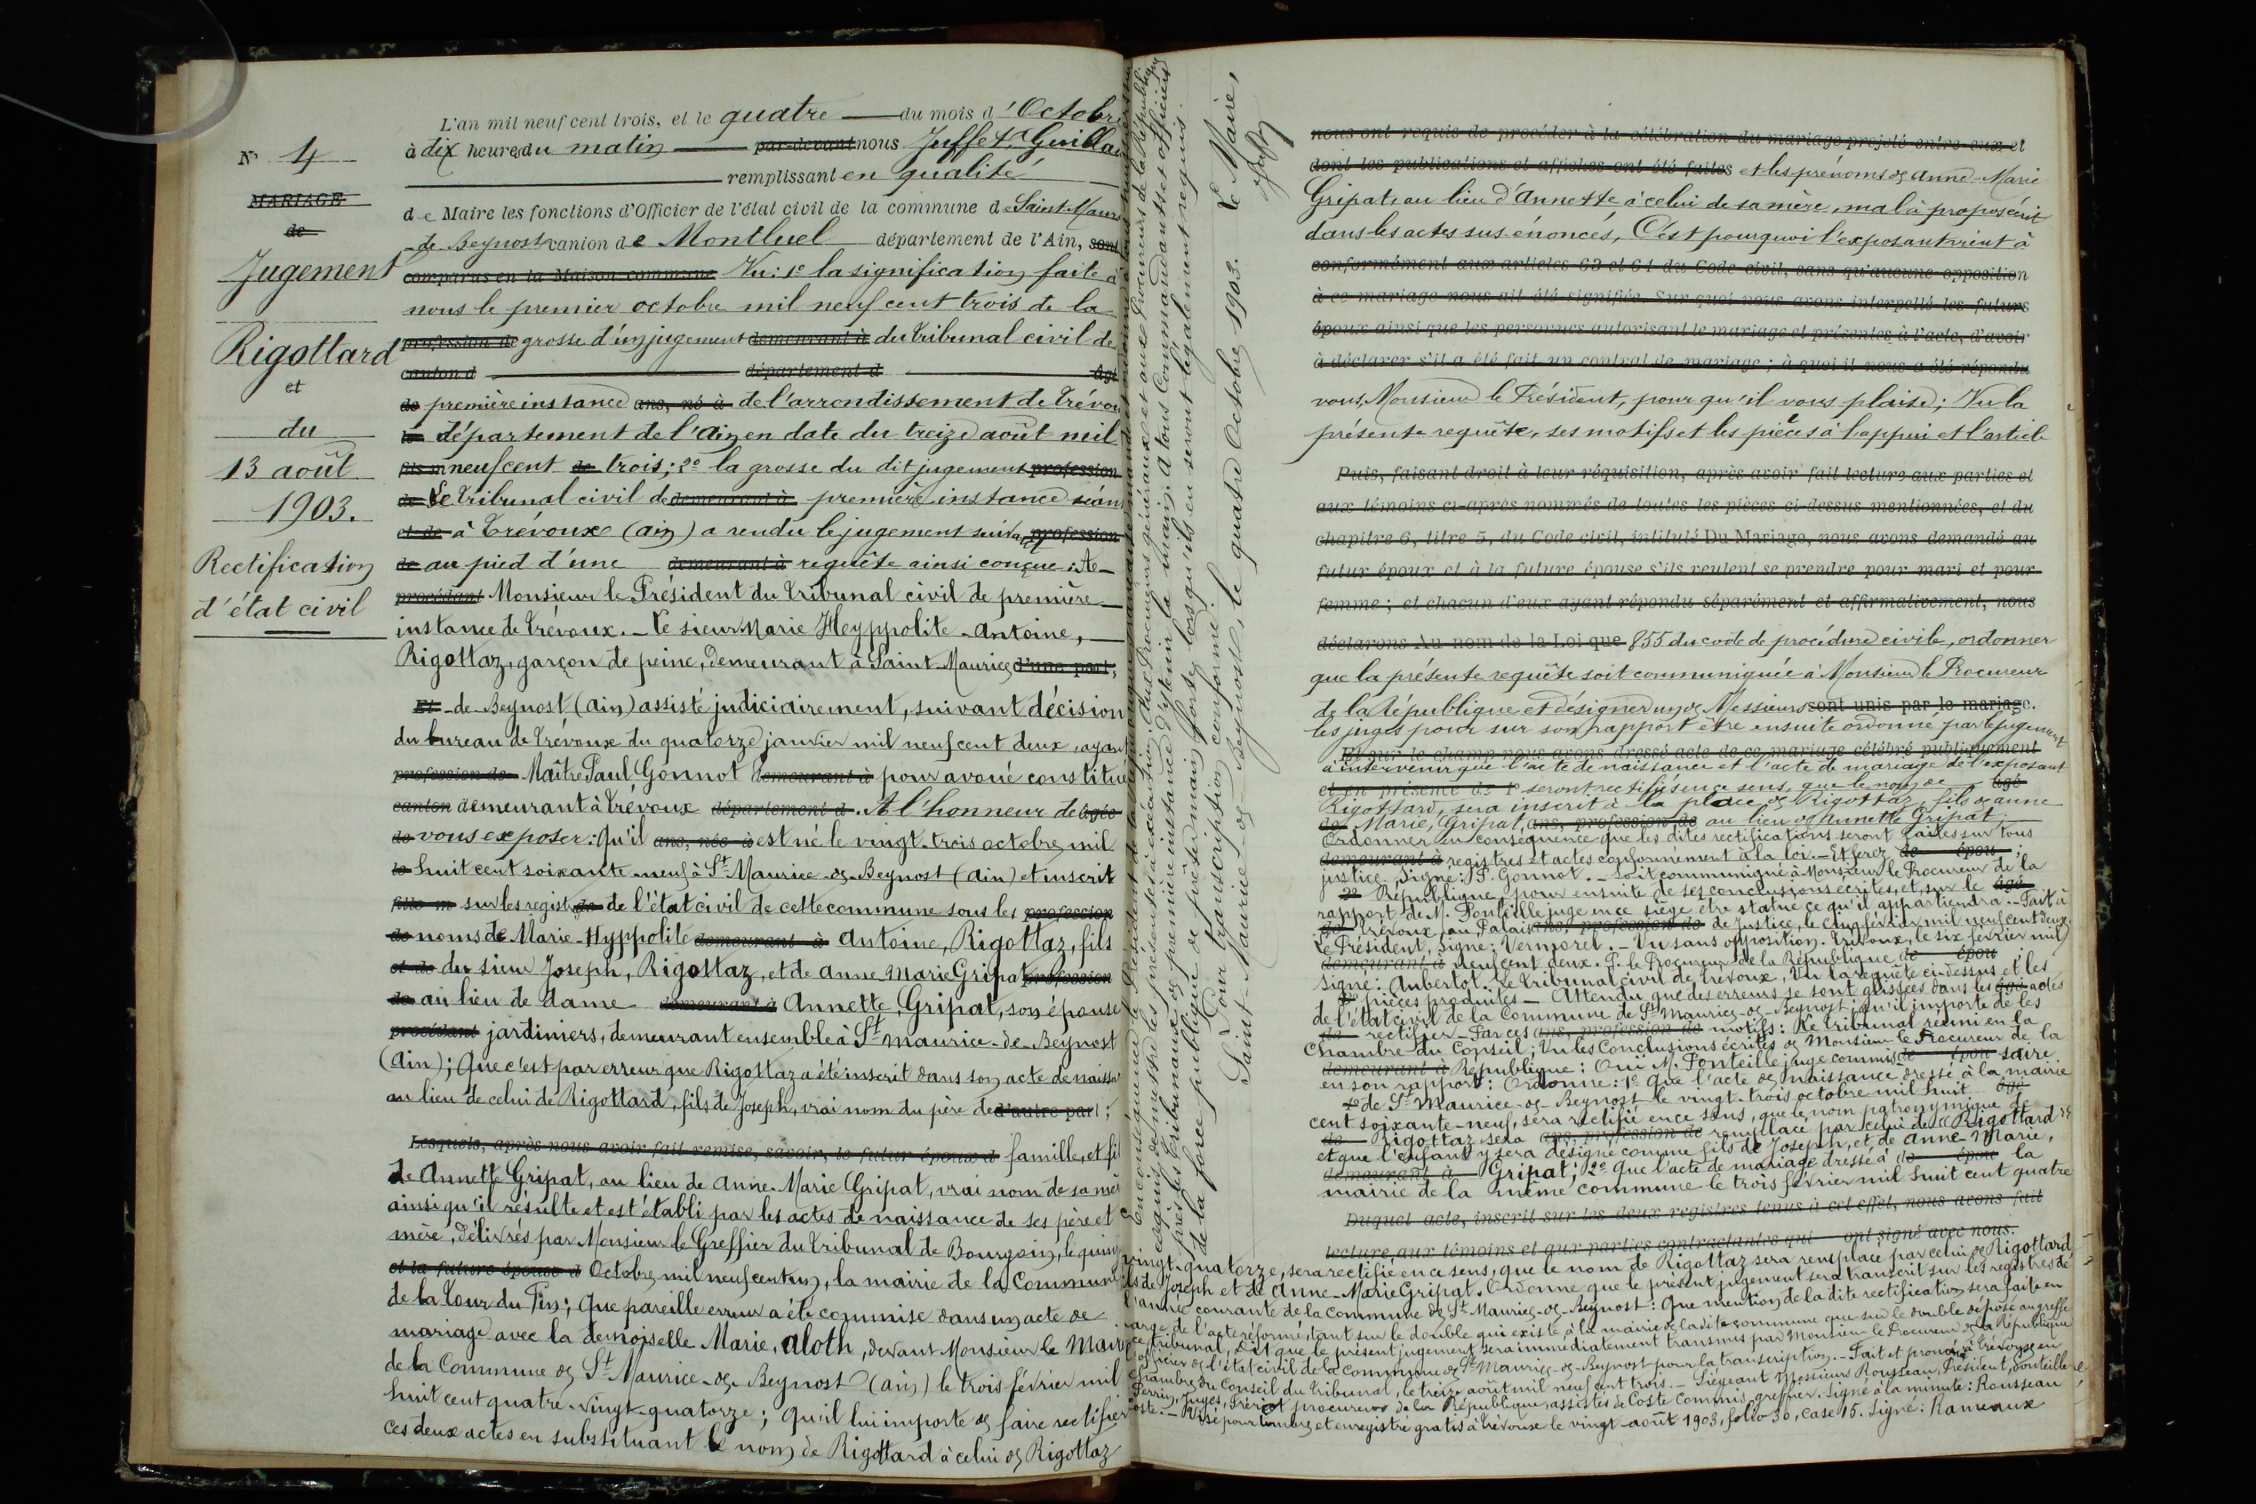 N° 4
MARIAGE
de
Jugement
Rigottard
et
du
13 août
1903.
Rectification
d'état civil
L'an mil neuf cent trois, et le quatre du mois d'Octobre
à dix heures du matin par-devant nous Juffet Guillau
remplissant en qualité
de Maire les fonctions d'Officier de l'état civil de la commune de Saint-Maurice
de Beynost canton de Montluel département de l'Ain, sont
comparus en la Maison commune Vu: 1° la signification faite à
nous le premier octobre mil neuf cent trois de la
profession de grosse d'un jugement demeurant à du tribunal civil de
canton d département d âgé
de première instance ans, né à de l'arrondissement de Trévoux
le département de l'Ain en date du treize août mil
fils m neuf cent de trois; 2° la grosse du dit jugement profession
de Le tribunal civil de demeurant à première instance séant
et de à Trévoux (Ain) a rendu le jugement suivant profession
de au pied d'une demeurant à requête ainsi conçue: A
procédant Monsieur le Président du Tribunal civil de première
instance de Trévoux. – Le sieur Marie Heyppolite-Antoine,
Rigottaz, garçon de peine, demeurant à Saint-Maurice d'une part;
Et de Beynost (Ain) assisté judiciairement, suivant décision
du bureau de Trévoux du quatorze janvier mil neuf cent deux, ayant
profession de Maître Paul Gonnot demeurant à pour avoué constitué
canton demeurant à Trévoux département d. A l'honneur de âgée
de vous exposer: Qu'il ans, née à est né le vingt-trois octobre mil
le huit cent soixante-neuf à St Maurice-de-Beynost (Ain) et inscrit
fille m sur les registres de de l'état civil de cette commune sous les profession
de noms de Marie-Hyppolite demeurant à Antoine, Rigottaz, fils
et de du sieur Joseph, Rigottaz, et de Anne Marie Gripat profession
de au lieu de dame demeurant à Annette, Gripat, son épouse
procédant jardiniers, demeurant ensemble à St Maurice-de-Beynost
(Ain); Que c'est par erreur que Rigottaz a été inscrit dans son acte de naissance
au lieu de celui de Rigottard, fils de Joseph, vrai nom du père de d'autre part;
Lesquels, après nous avoir fait remise, savoir, le futur époux d famille, et fils
de Annette Gripat, au lieu de Anne-Marie Gripat, vrai nom de sa mère
ainsi qu'il résulte et est établi par les actes de naissance de ses père et
mère, délivrés par Monsieur le Greffier du tribunal de Bourgoin, le quinze
et la future épouse d Octobre mil neuf cent un, la mairie de la Commune
de la Tour du Pin; Que pareille erreur a été commise dans un acte de
mariage avec la demoiselle Marie, Aloth, devant Monsieur le Maire
de la Commune de St Maurice-de-Beynost (Ain) le trois février mil
huit cent quatre-vingt-quatorze; Qu'il lui importe de faire rectifier
ces deux actes en substituant le nom de Rigottard à celui de Rigottaz
nous ont requis de procéder à la célébration du mariage projeté entre eux et
dont les publications et affiches ont été faites et les prénoms de Anne-Marie
Gripat, au lieu d'Annette à celui de sa mère, mal à propos écrit
dans les actes sus énoncés, C'est pourquoi l'exposant vient à
conformément aux articles 63 et 64 du Code civil, sans qu'aucune opposition
à ce mariage nous ait été signifiée. Sur quoi nous avons interpellé les futurs
époux ainsi que les personnes autorisant le mariage et présentes à l'acte, d'avoir
à déclarer s'il a été fait un contrat de mariage; à quoi il nous a été répondu
vous, Monsieur le Président, pour qu'il vous plaise; Vu la
présente requête, ses motifs et les pièces à l'appui et l'article
Puis, faisant droit à leur réquisition, après avoir fait lecture aux parties et
aux témoins ci-après nommés de toutes les pièces ci-dessus mentionnées, et du
chapitre 6, titre 5, du Code civil, intitulé Du Mariage, nous avons demandé au
futur époux et à la future épouse s'ils veulent se prendre pour mari et pour
femme; et chacun d'eux ayant répondu séparément et affirmativement, nous
déclarons Au nom de la Loi que 855 du code de procédure civile, ordonner
que la présente requête soit communiquée à Monsieur le Procureur
de la République et désigner un de Messieurs sont unis par le mariage.
les juges pour sur son rapport être ensuite ordonné par le jugement
Et sur le champ nous avons dressé acte de ce mariage célébré publiquement
à intervenir que l'acte de naissance et l'acte de mariage de l'exposant
et en présence de 1° seront rectifiés en ce sens, que le nom de âgé
Rigottard, sera inscrit à la place de Rigottaz, fils de Anne
de Marie, Gripat, ans, profession de au lieu de Annette Gripat.
Ordonner en conséquence que les dites rectifications seront faites sur tous
demeurant à registres et actes conformément à la loi. – Et ferez de épou
justice. Signé: P. Gonnot. – Soit communiqué à Monsieur le Procureur de la
2° République, pour ensuite de ses conclusions écrites, et, sur le âgé
rapport de M. Ponteille juge en ce siège être statué ce qu'il appartiendra. – Fait à
de Trévoux, au Palais ans, profession de de Justice, le cinq février mil neuf cent deux
Le Président, Signé: Vermorel. – Vu sans opposition. Trévoux, le six février mil
demeurant à neuf cent deux. P. le Procureur de la République de épou
Signé: Aubertot. Le Tribunal civil de Trévoux, Vu la requête ci-dessus et les
3° pièces produites – Attendu que des erreurs se sont glissées dans les âgé actes
de l'état civil de la Commune de St Maurice-de-Beynost; qu'il importe de les
de rectifier – Par ces ans, profession de motifs: Le tribunal réuni en la
Chambre du Conseil; Vu les Conclusions écrites de Monsieur le Procureur de la
demeurant à République: Ouï M. Ponteille juge commis de épou saire
en son rapport: Ordonne: 1° Que l'acte de naissance dressé à la mairie
4° de St Maurice-de-Beynost le vingt-trois octobre mil huit âgé
cent soixante-neuf, sera rectifié en ce sens, que le nom patronymique de
de Rigottaz sera ans, profession de remplacé par celui de "Rigottard"
et que l'enfant y sera désigné comme fils de Joseph, et de Anne-Marie,
demeurant à Gripat; 2° Que l'acte de mariage dressé à de épou la
mairie de la même commune le trois février mil huit cent quatre
Duquel acte, inscrit sur les deux registres tenus à cet effet, nous avons fait
lecture aux témoins et aux parties contractantes qui ont signé avec nous.
vingt-quatorze, sera rectifié en ce sens, que le nom de Rigottaz sera remplacé par celui de Rigottard,
fils de Joseph et de Anne-Marie Gripat. Ordonne que le présent jugement sera transcrit sur les registres de
l'année courante de la Commune de St Maurice-de-Beynost: Que mention de la dite rectification sera faite en
marge de l'acte réformé, tant sur le double qui existe à la mairie de ladite commune que sur le double déposé au greffe
ce tribunal, Dit que le présent jugement sera immédiatement transmis par Monsieur le Procureur de la République
officier de l'état civil de la commune de St Maurice-de-Beynost pour la transcription. – Fait et prononcé à Trévoux en
chambre du Conseil du tribunal, le treize août mil neuf cent trois. – Siégeant Messieurs Rousseau, Président, Ponteille
Perrin, Juges, procureur de la République, assistés de Coste Commis greffier. Signé à la minute: Rousseau
Coste. – Visé pour timbre et enregistré gratis à Trévoux le vingt août 1903, folio 30, case 15. Signé: Rameaux
En conséquence le Président de la République
requis de mettre les présentes à exécution: Aux Procureurs généraux et aux Procureurs de la République
près les tribunaux de première instance d'y tenir la main. A tous Commandants et officiers
de la force publique de prêter main forte, lorsqu'ils en seront légalement requis.
Pour transcription conforme:
Saint-Maurice-de-Beynost, le quatre Octobre 1903.
Le Maire,
Juffet